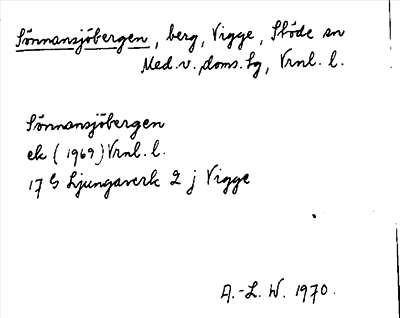 Sönnansjöbergen, berg, Vigge, Stöde sn
Med.v. doms.lg, Vrnl. l.
Sönnansjöbergen
ek (1969) Vrnl. l.
17 G Ljungaverk 2 j Vigge
A.-L. W. 1970.